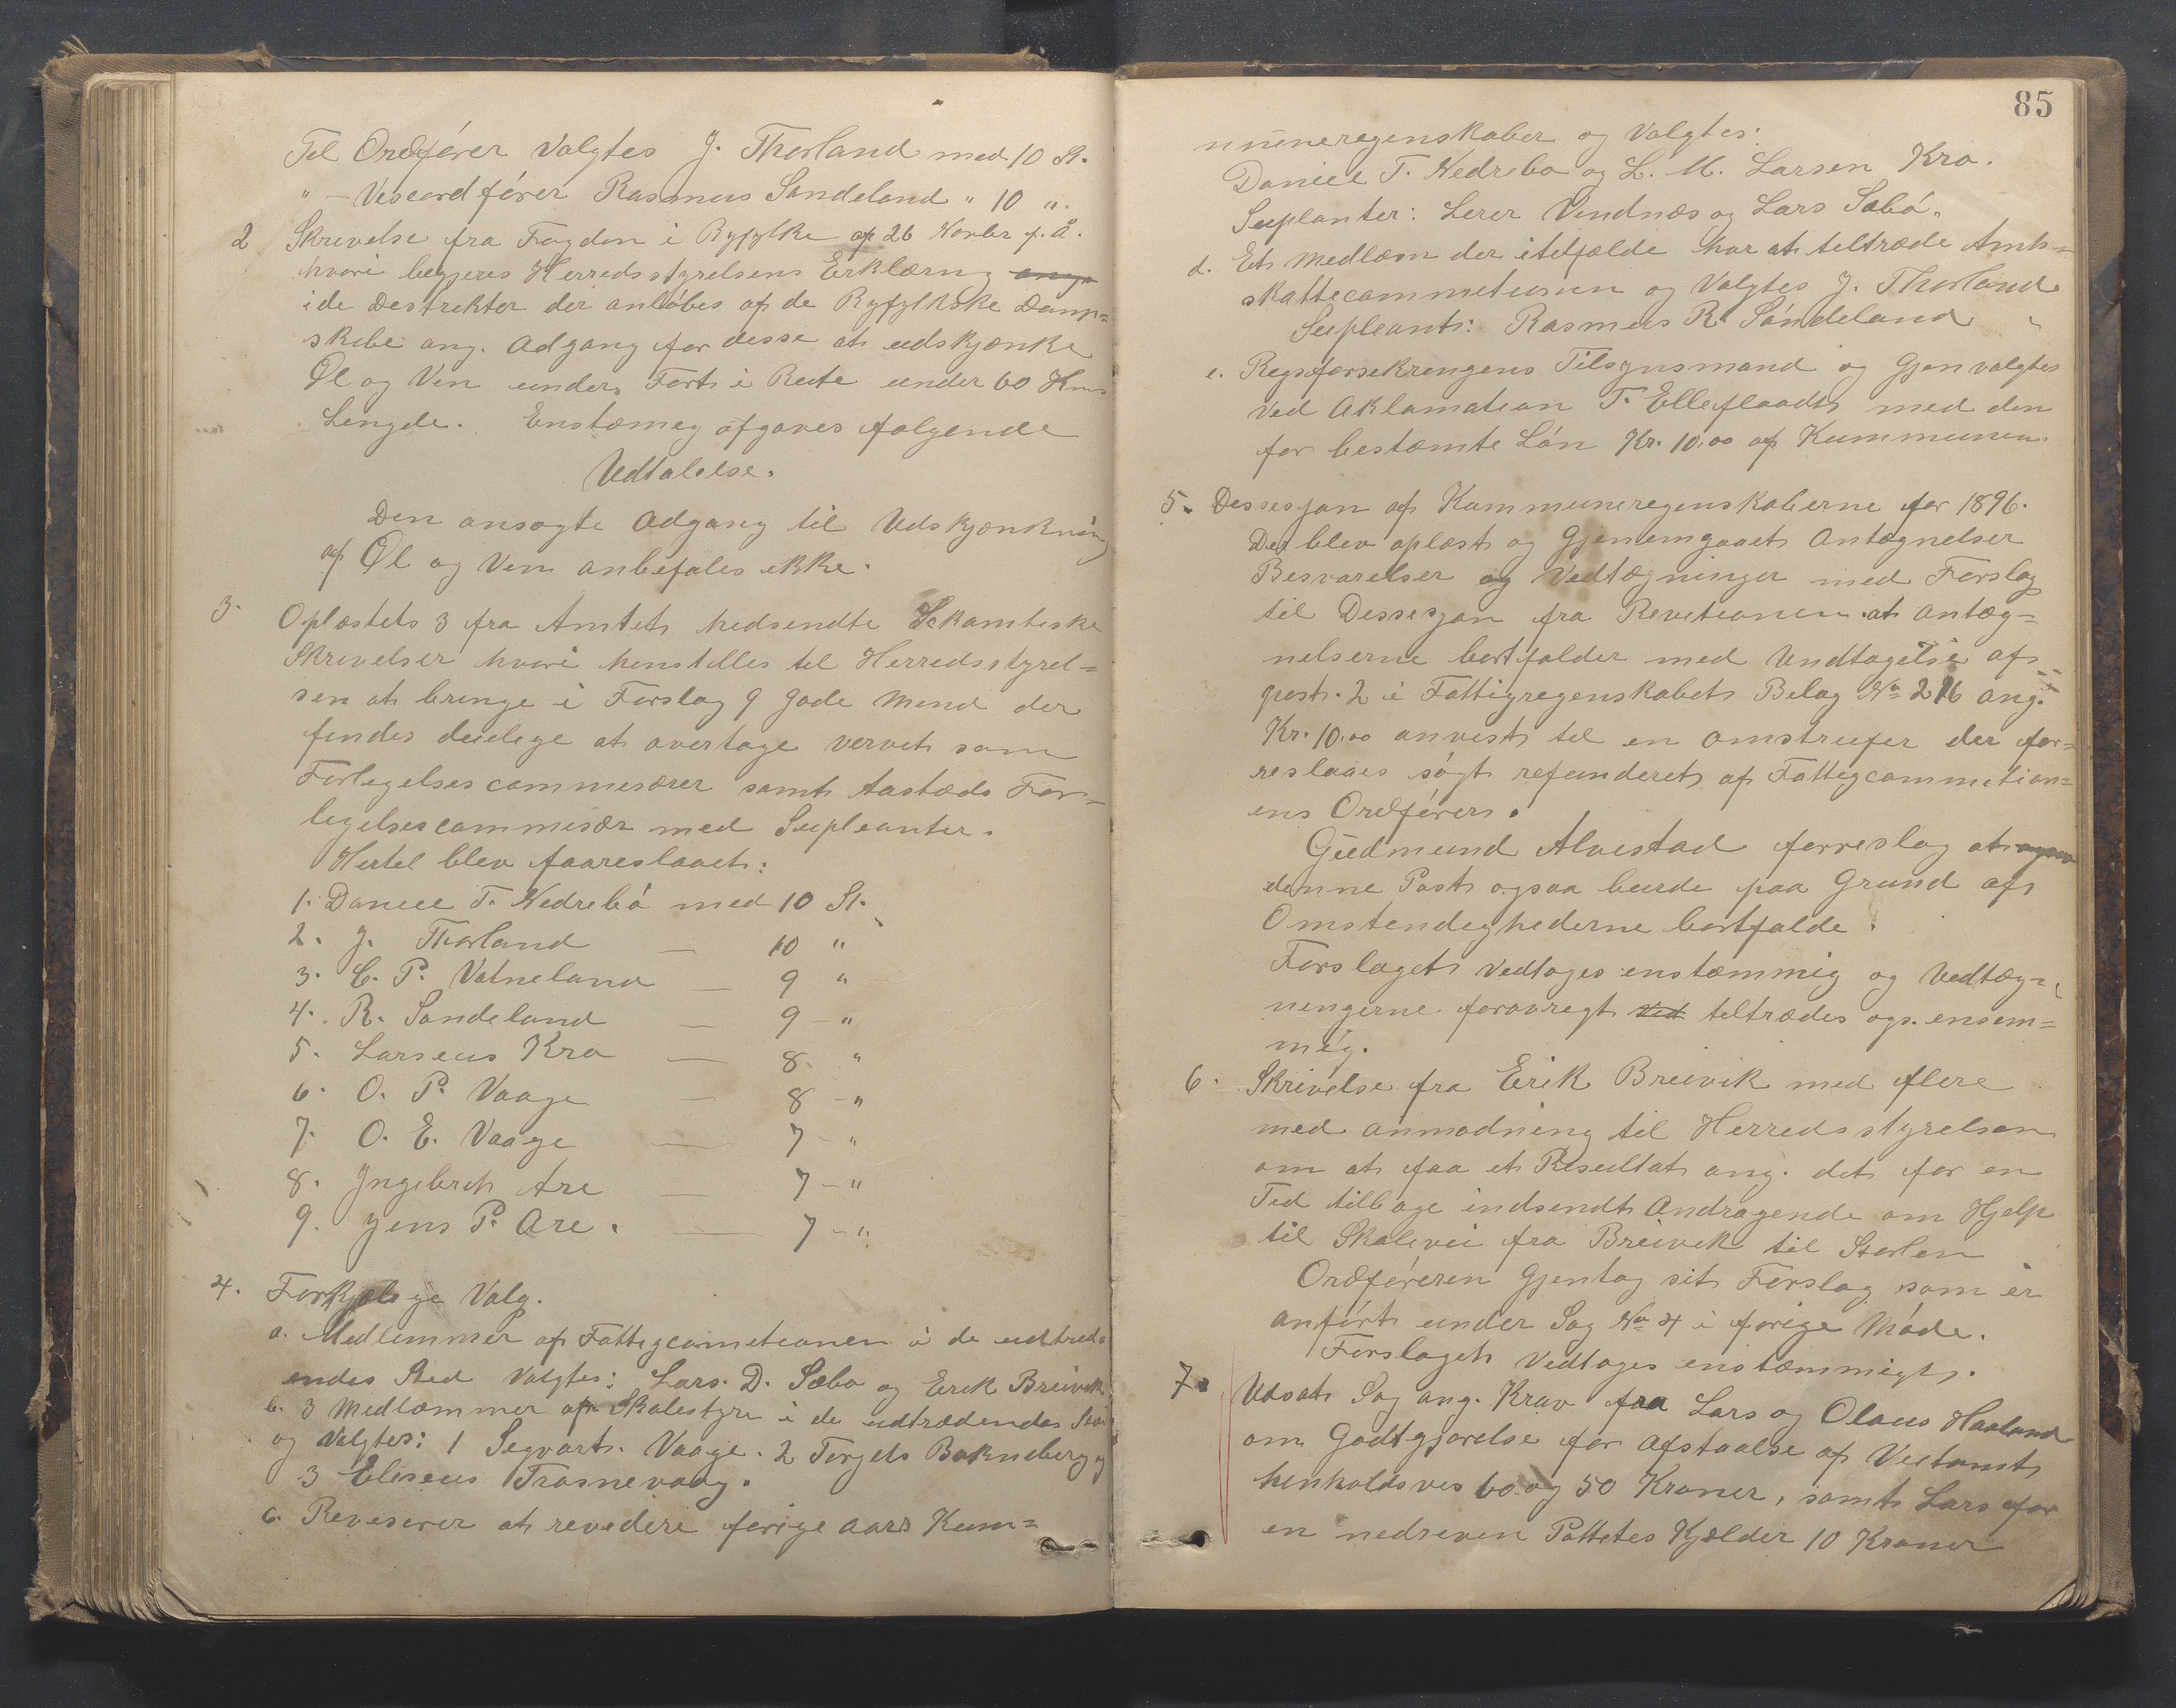 Tel Ordfører Valgtes J. Thorland med 10 St.
" — Veseordfører Rasmus Sandeland " 10 ".
2 Skrevelse fra Fogden i Ryfylke af 26 Novbr f. A.
hvori begjeres Herredsstyrelsens Erklæring
i de Destrekter der anløbes af de Ryfylkske Damp=
skebe ang. Adgang for desse at udskjænke
Øl og Ven under Fart i Rute under 60 Kms
Lengde. Enstæmeg afgaves følgende
Udtalelse.
Den ansøgte Adgang til Udskjænkning
af Øl og Ven anbefales ekke.
3. Oplæstets 3 fra Amtet nedsendte
Skrevelser hvori henstilles til Herredsstyrel=
sen at bringe i Forslag 9 gode Mend der
findes duelige at overtage vervet som
Forlegelsescommesærer samt Aastæds For=
legelsescommisær med Supleanter.
Hertel blev faareslaaet:
1. Daneel T. Nedrebø med 10 St.
2. J. Thorland — 10 "
3. C. P. Vatneland — 9 "
4. R. Sandeland — 9 — "
5. Larseus Kro — 8. "
6. O. P. Vaage — 8 — "
7. O. E. Vaage — 7 — "
8. Ingebret Are — 7 — "
9. Jens P. Are. — 7 — "
4. Forskjelige Valg.
a. Medlemmer af Fattegcometeonen i de udtred=
endes Sted Valgtes: Lars. D. Sæbø og Erek Breivek
b. 3 Medlæmmer af Skolestyre i de udtrædendes Sted
og Valgtes: 1 Segvart. Vaage. 2 Torgels Bokneberg og
3 Eliseus Trosnevaag.
c. Reveserer at revedere forige Aars Kum=
85
muneregenskaber og Valgtes:
Daneel T. Nedrebø og L. M. Larsen Kro.
Suplanter: Lerer Vendnæs og Lars Sæbø.
d. Et Medlæm der itelfælde har at teltræde Amts=
skattecommeteonen og Valgtes J. Thorland
Supleant: Rasmus R. Sandeland
e. Regsforsekrengens Tilsynsmand og Gjenvalgtes
ved Aklamatean T. Elleflaadt med den
for bestæmte Løn Kr. 10.00 af Kummunen.
5. Dessesjon af Kommuneregenskaberne for 1896.
Det blev oplæst og Gjenemgaaet Antegnelser
Besvarelser og Vedtægninger med Forslag
til Dessesjon fra Reveteonen at Antæg=
nelserne bortfalder med Undtagelse af
post. 2 i Fattigregenskabet Belag No 216 ang.
Kr. 10.00 anvest tel en omstreefer der for=
reslaaes søgt refunderet af Fattegcommetion=
ens Ordfører.
Gudmund Alvestad forreslog at
denne Post ogsaa burde paa Grund af
Omstendeghederne bortfalde.
Forslaget vedtages enstæmmig og Vedtæg=
nengerne forøvregt teltrædes ogs. ensem=
mig.
6. Skrivelse fra Erik Breivik med flere
med anmodning til Herredsstyrelsen
om at faa et Resultat ang. det for en
Ted tilbage indsendt Andragende om Hjelp
til Skolevei fra Breivek til Storlen
Ordføreren Gjentog sit Forslag som er
anført under Sag No 4 i forige Møde.
Forslaget Vedtages enstæmmigt.
7. Udsat Sag ang. Krav fra Lars og Olaus Haaland
om Godtgjørelse for Afstaalse af Veetomt
henholdsves 60 og 50 Kroner, samt Lars for
en nedreven Pottetes Kjælder 10 Kroner